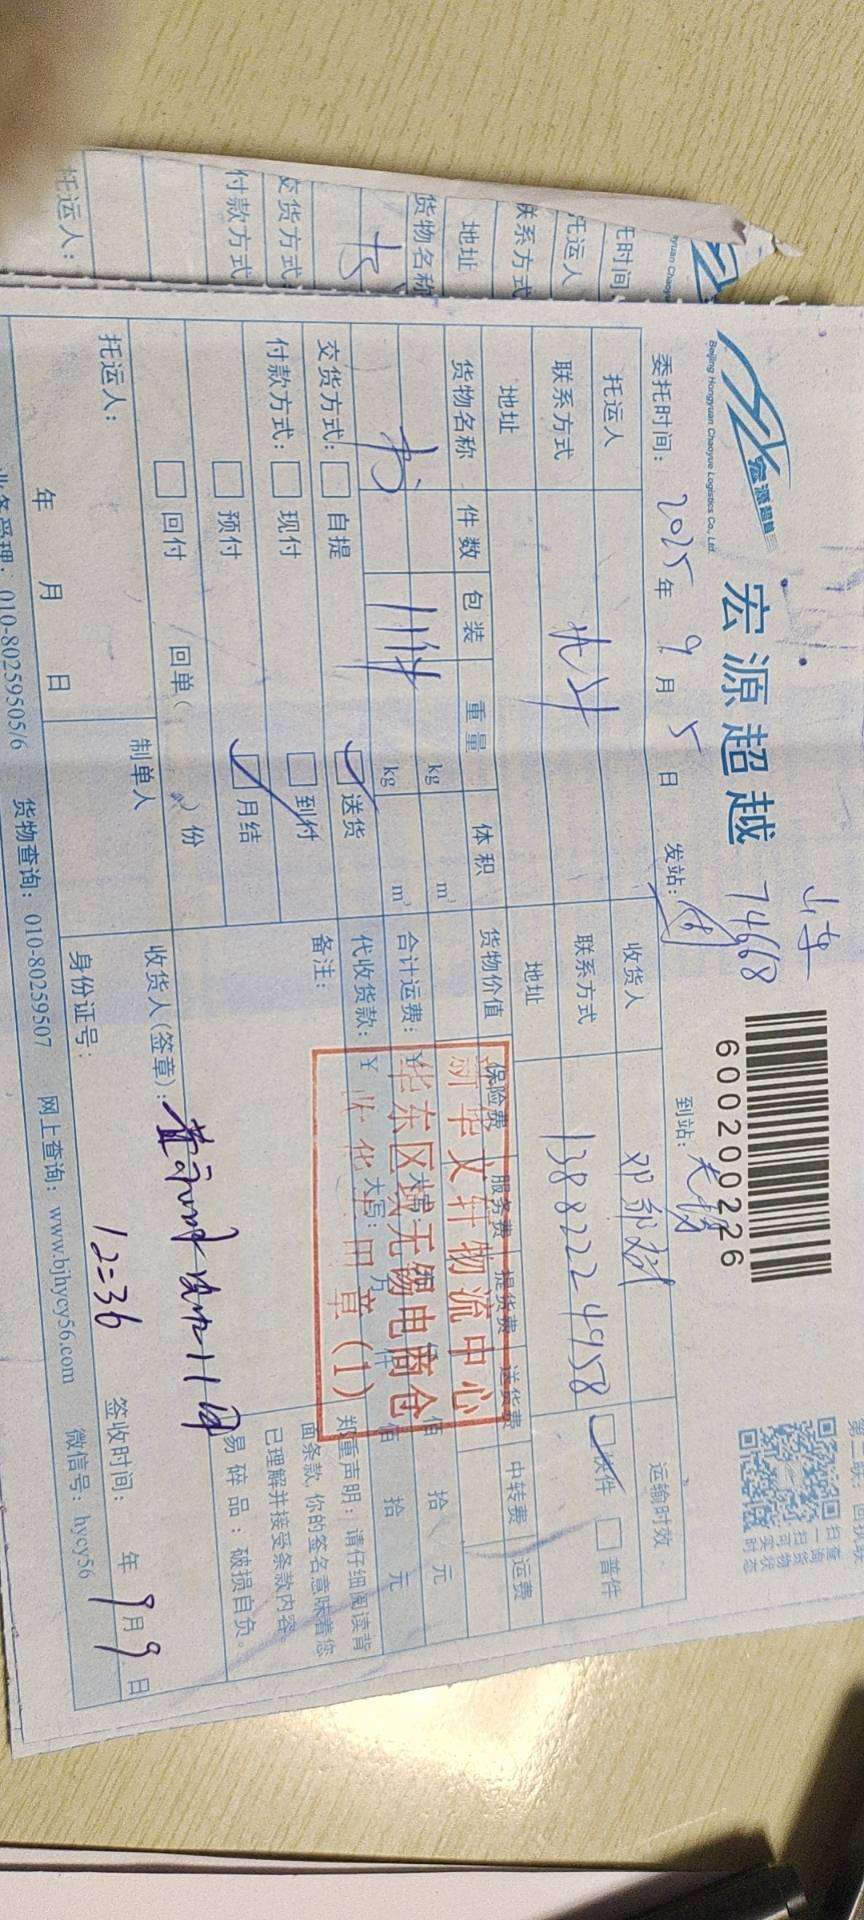 托时间
托运人
联系方式
地址
货物名称
书
交货方式:
付款方式
托运人:
宏源超越
Beijing Hongyuan Chaoyue Logistics Co., Ltd.
宏源超越
山东
74668
600200226
扫一扫
查询货物实时状态
委托时间: 2025年 9月 5日 发站: 到站: 无锡
托运人 收货人 运输时效
联系方式 北斗 联系方式 13882224958 快件 普件
地址 地址
货物名称 件数 包装 重量 体积 货物价值 保险费 服务费 提货费 送货费 中转费 运费
书 11件 kg m³
kg m³
合计运费: ¥ 佰 拾 元
交货方式: 自提 送货 代收货款: ¥ 大写: 佰 拾 元
付款方式: 现付 到付 备注:
预付 月结
回付 回单( ) 份
新华文轩物流中心
华东区域无锡电商仓
收货专用章(1)
郑重声明:请仔细阅读背
面条款,你的签名意味着您
已理解并接受条款内容。
易碎品:破损自负。
托运人: 制单人 收货人(签章):
年 月 日 身份证号: 12:36 签收时间: 年 9月 9日
业务受理: 010-80259505/6 货物查询: 010-80259507 网上查询: www.bjhycy56.com 微信号: hycy56